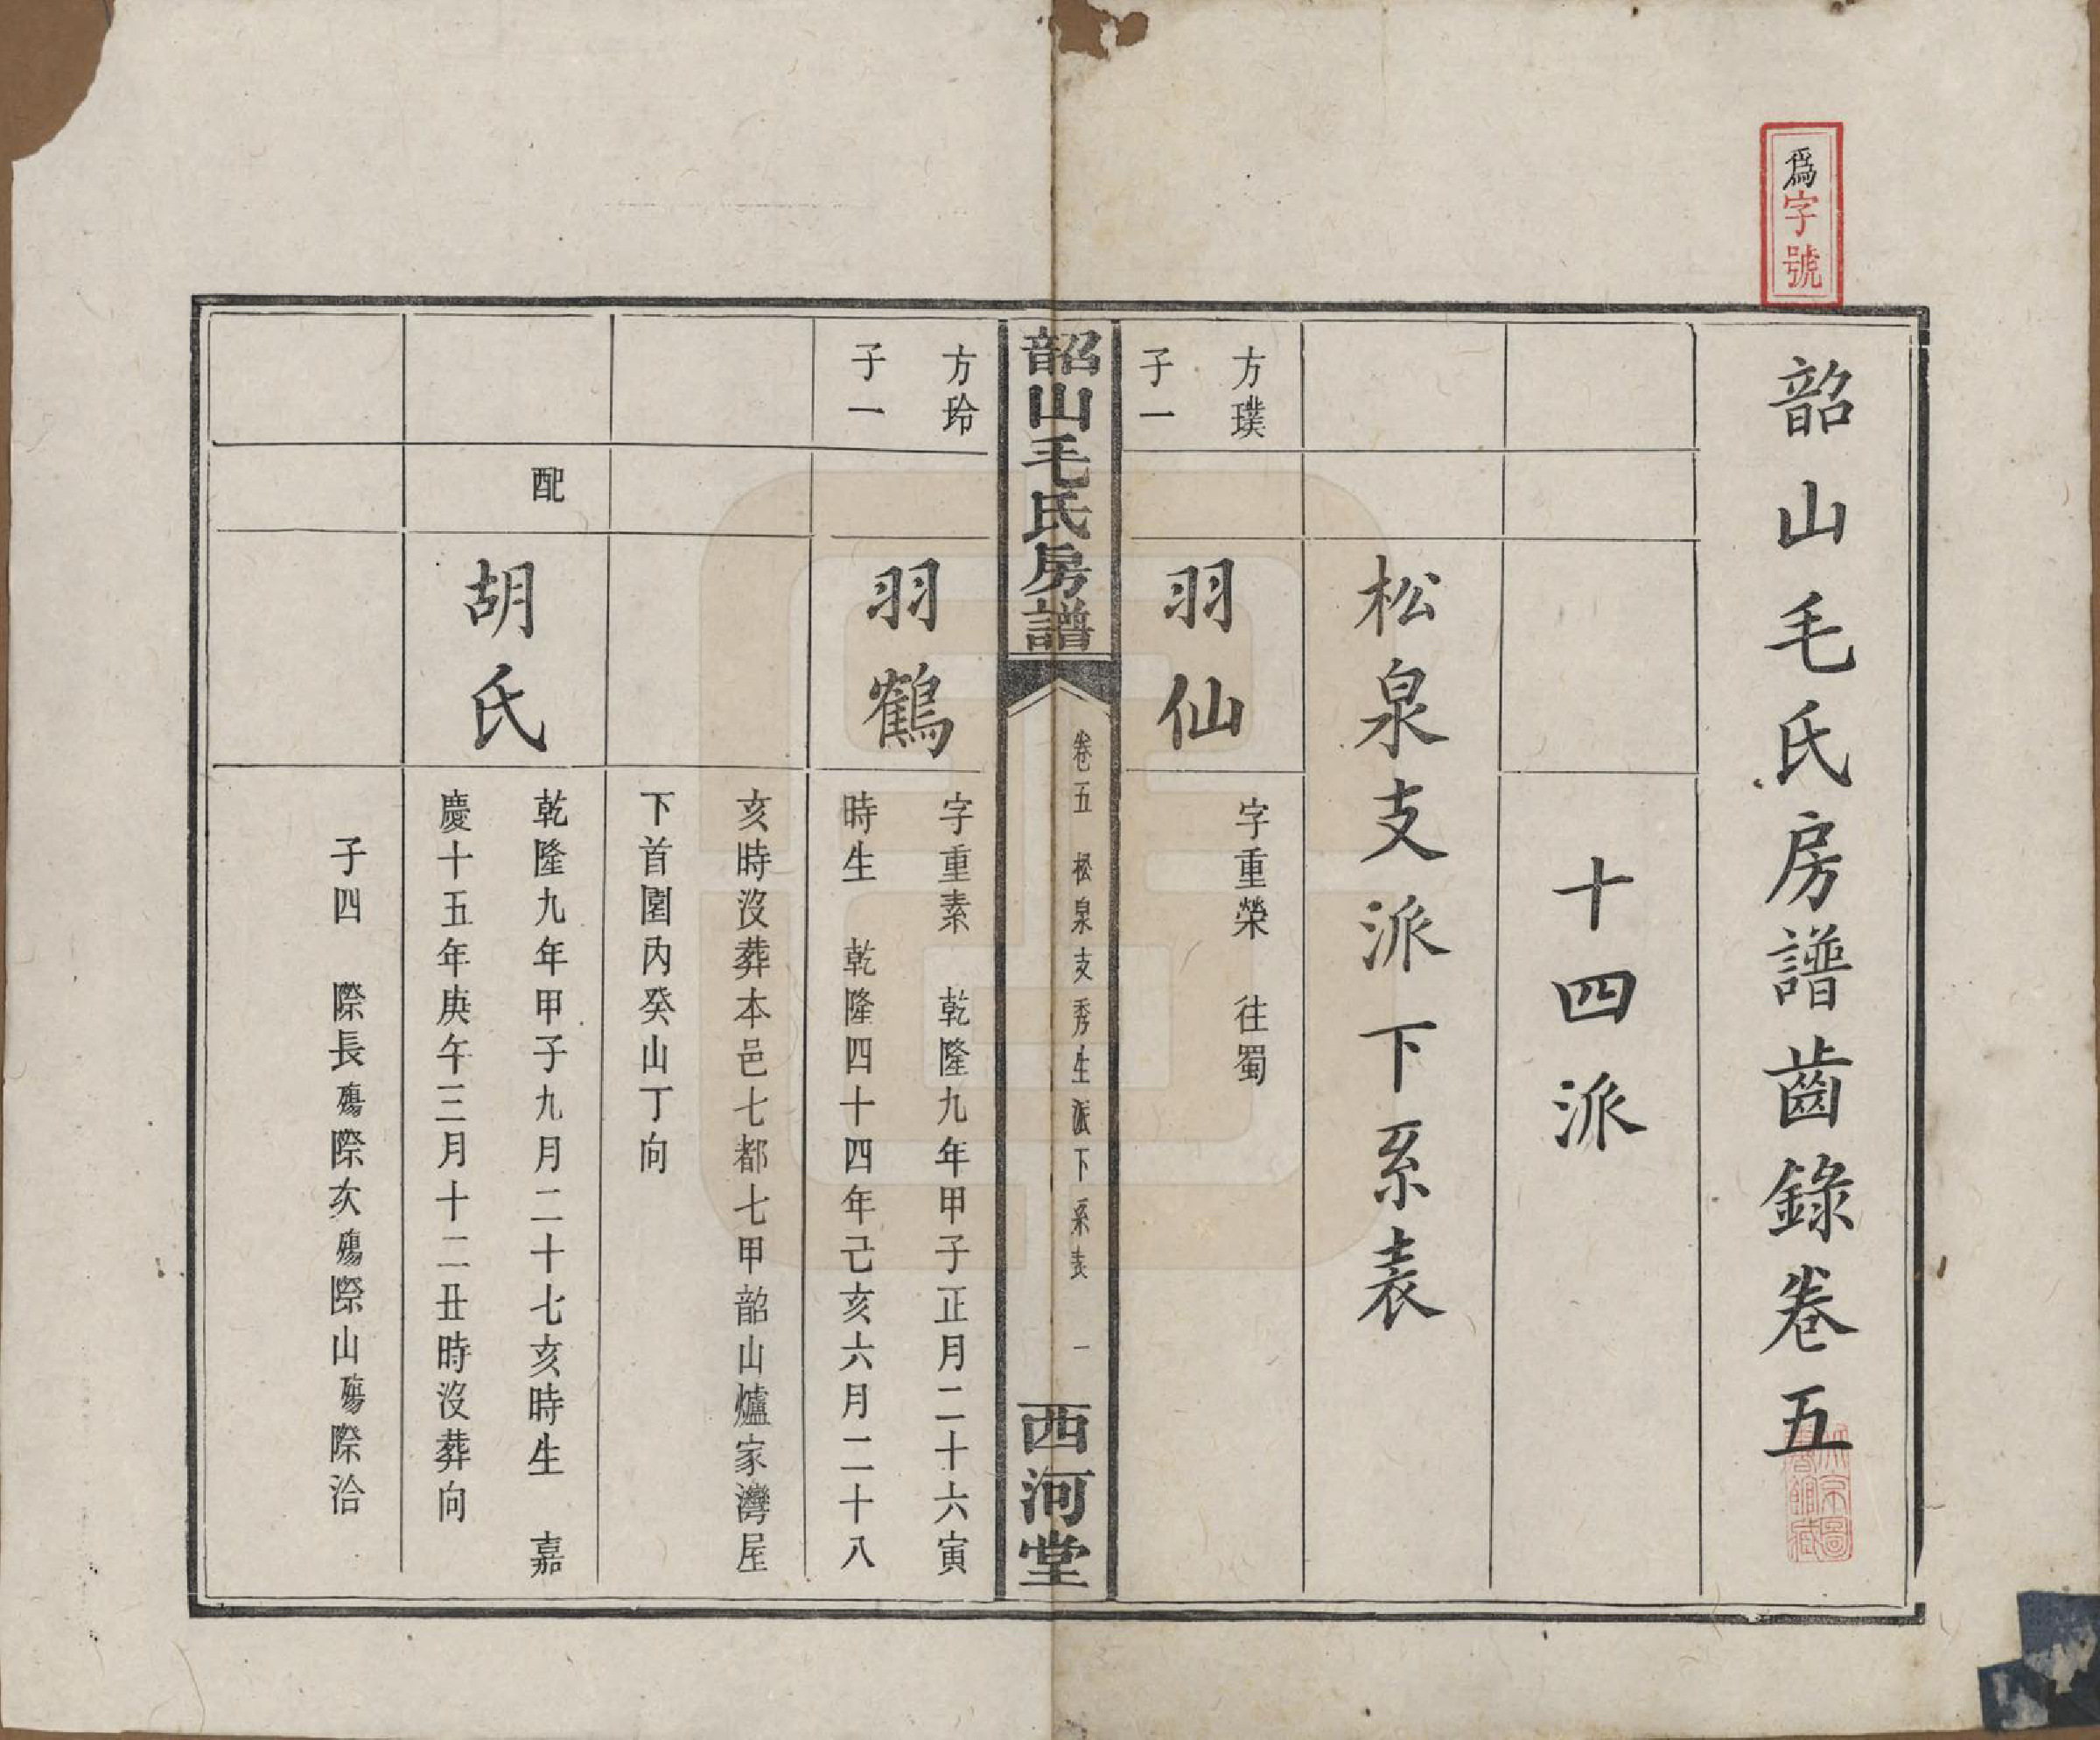 爲字號
韶山毛氏房譜齒錄卷五
十四派
松泉支派下系表
方璞
子一
羽仙
字重榮　往蜀
韶山毛氏房譜
卷五　松泉支秀生派下系表　一
西河堂
方玲
子一
羽鶴
字重素　乾隆九年甲子正月二十六寅
時生　乾隆四十四年己亥六月二十八
亥時沒葬本邑七都七甲韶山爐家灣屋
下首園內癸山丁向
配
胡氏
乾隆九年甲子九月二十七亥時生　嘉
慶十五年庚午三月十二丑時沒葬向
子四　際長殤際次殤際山殤際洽